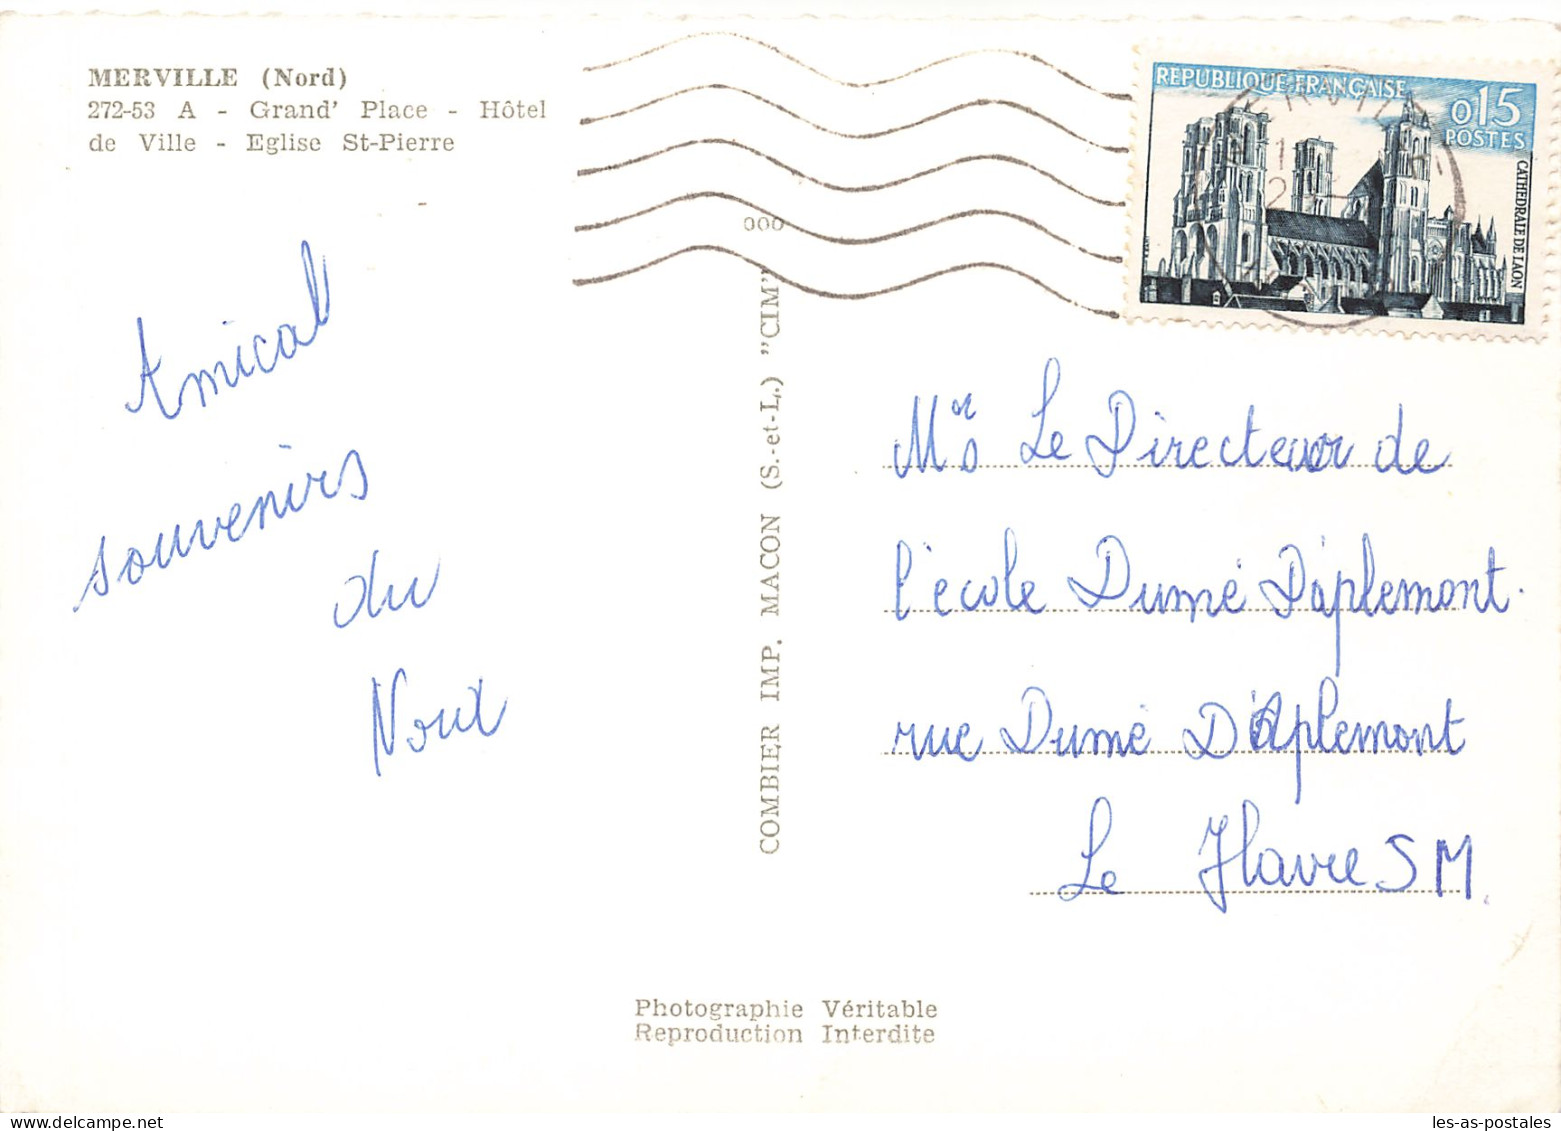 MERVILLE (Nord)
272-53 A - Grand' Place - Hôtel
de Ville - Eglise St-Pierre
RÉPUBLIQUE FRANÇAISE
0,15
POSTES
CATHÉDRALE DE LAON
000
COMBIER IMP. MACON (S.-et-L.) "CIM"
Amical
souvenirs
du
Nord
Mr Le Directeur de
l'école Dumé D'aplemont.
rue Dumé D'Aplemont
Le Havre SM.
Photographie Véritable
Reproduction Interdite
les-as-postales